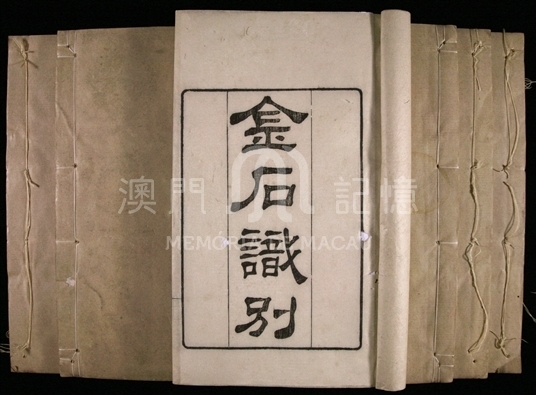 金石識別
澳門記憶
MEMÓRIA DE MACAU